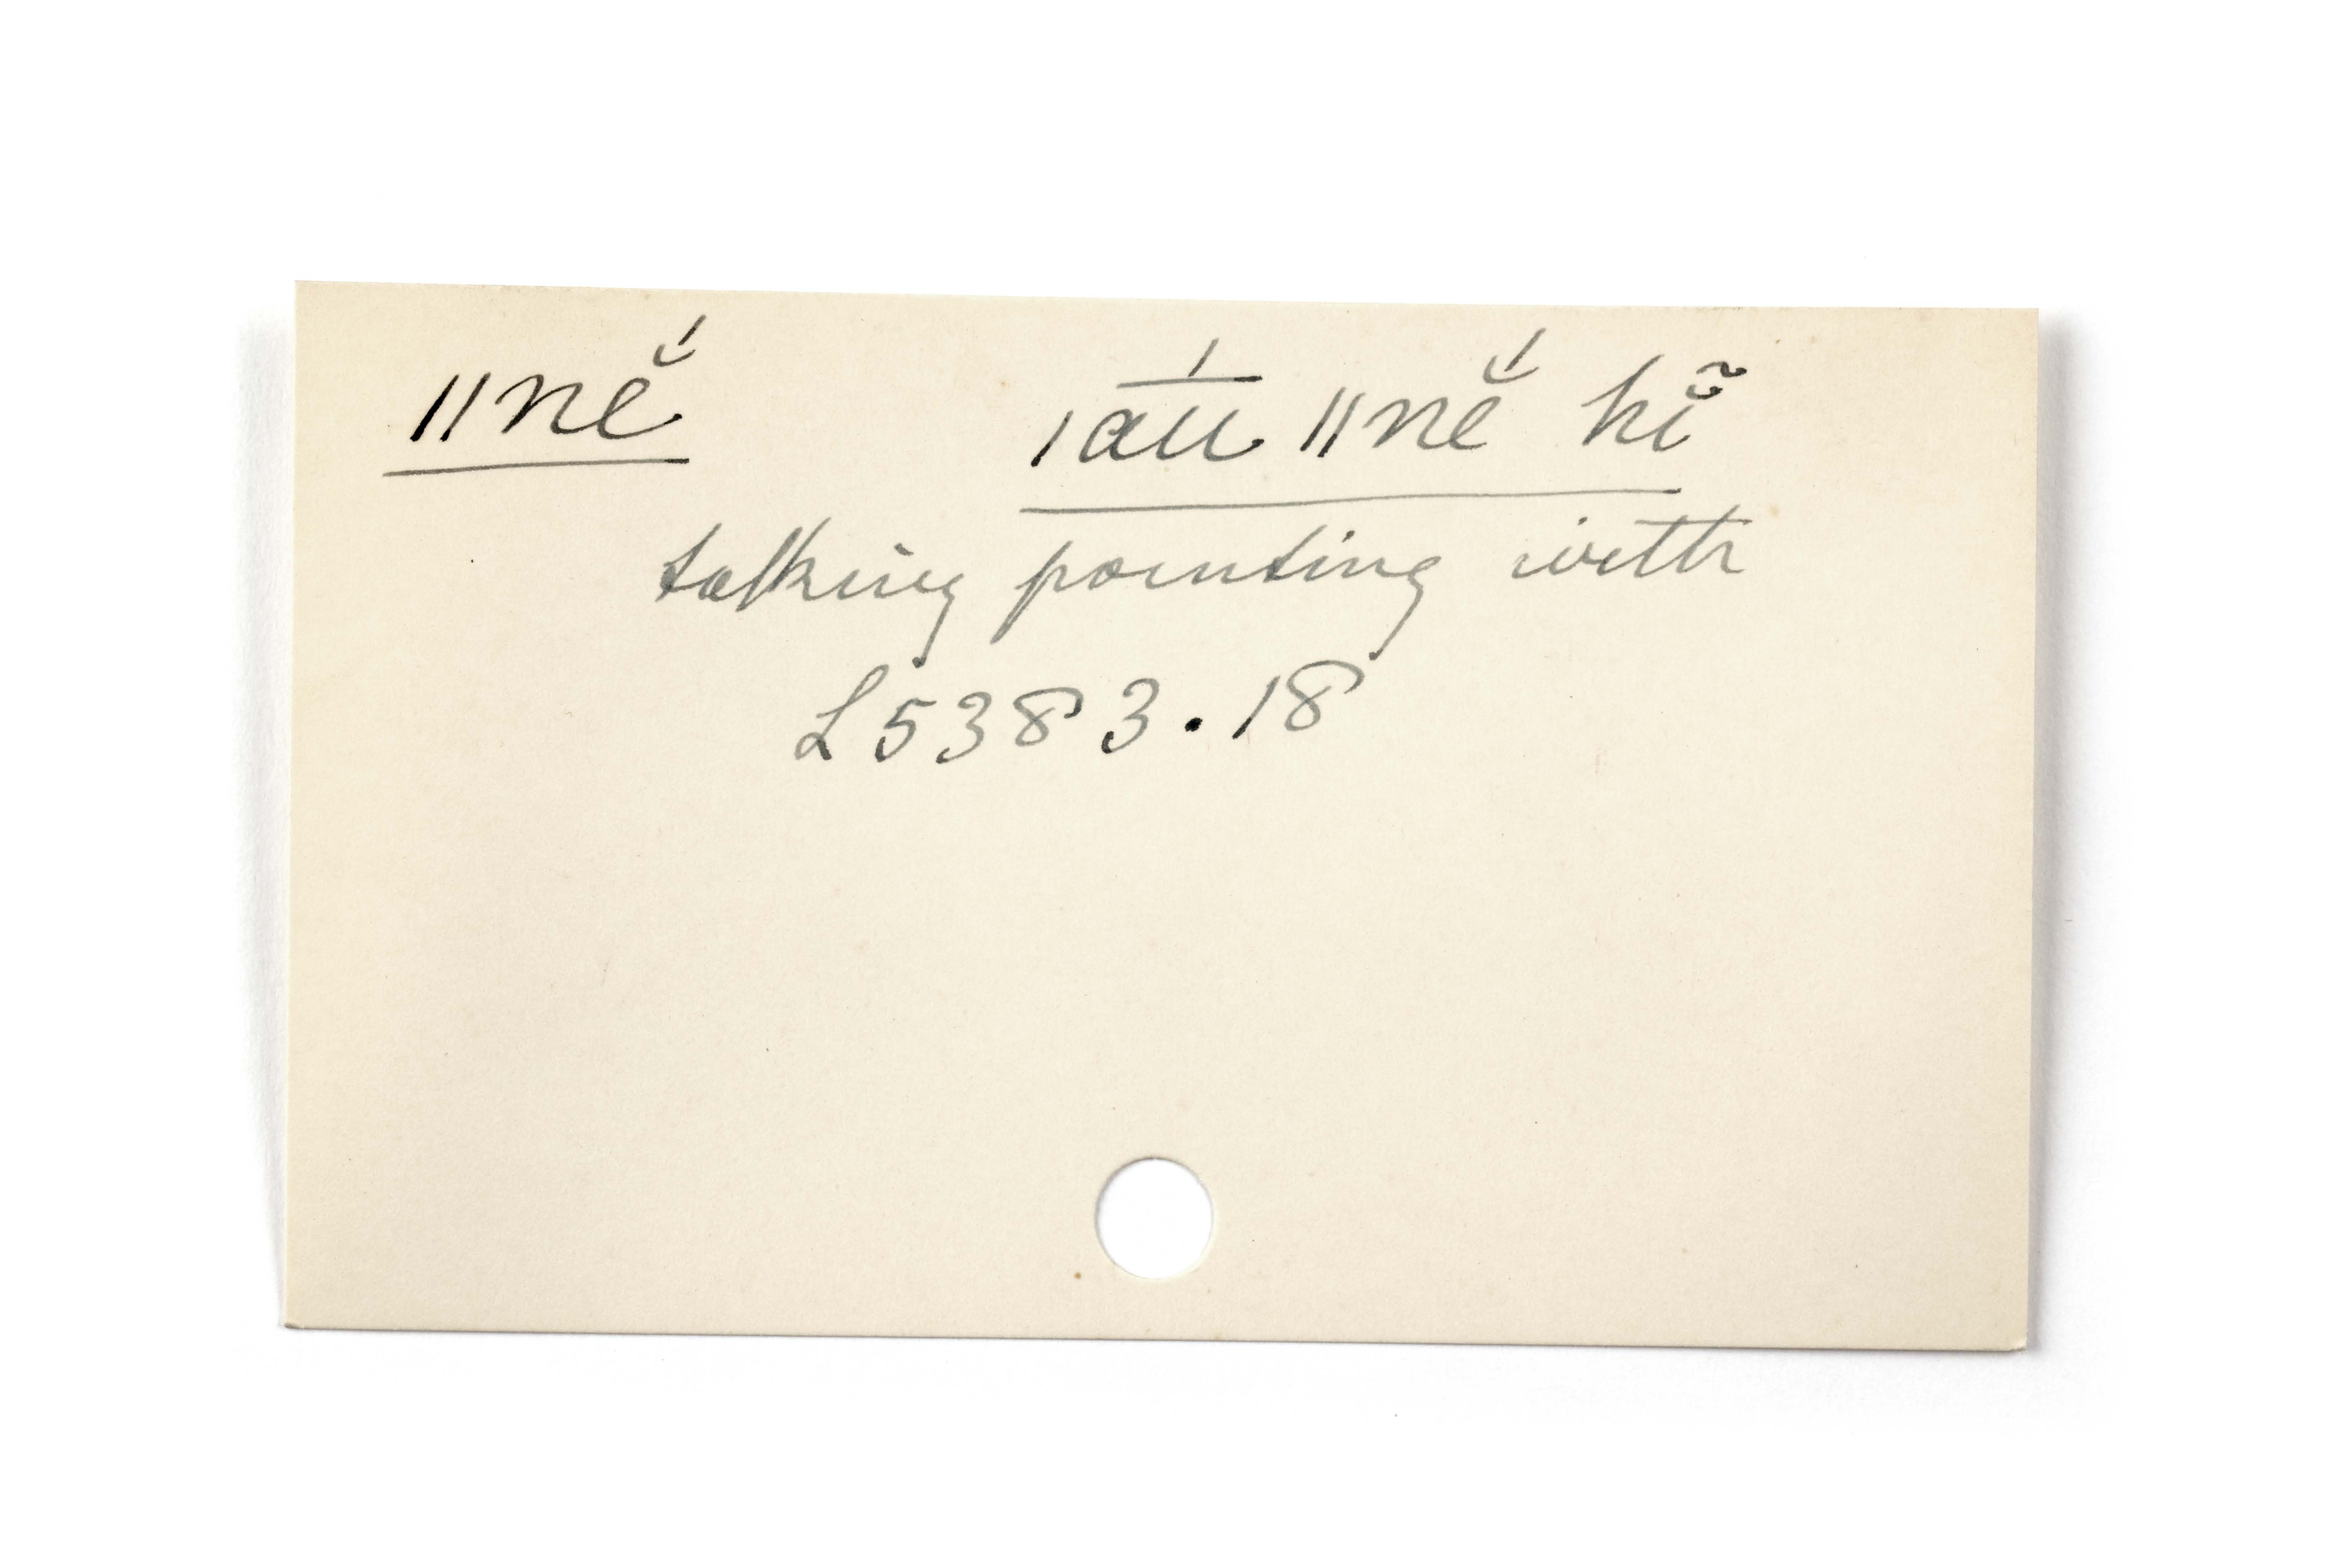 ǁnĕ́ ǀa͞úu ǁnĕ́ hĭ̃
talking pointing with
L5383.18